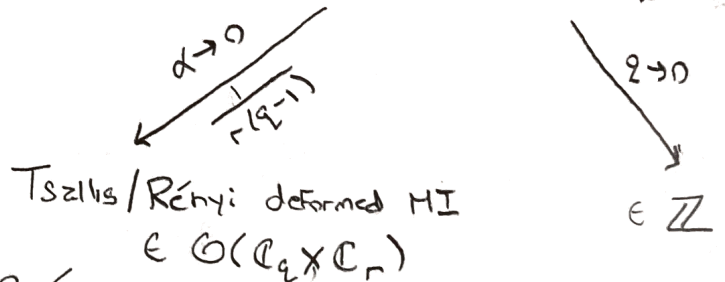 α→0
q→0
r(q-1)
Tsallis/Rényi deformed MI
∈ ℤ
∈ O(ℂ_q×ℂ_r)